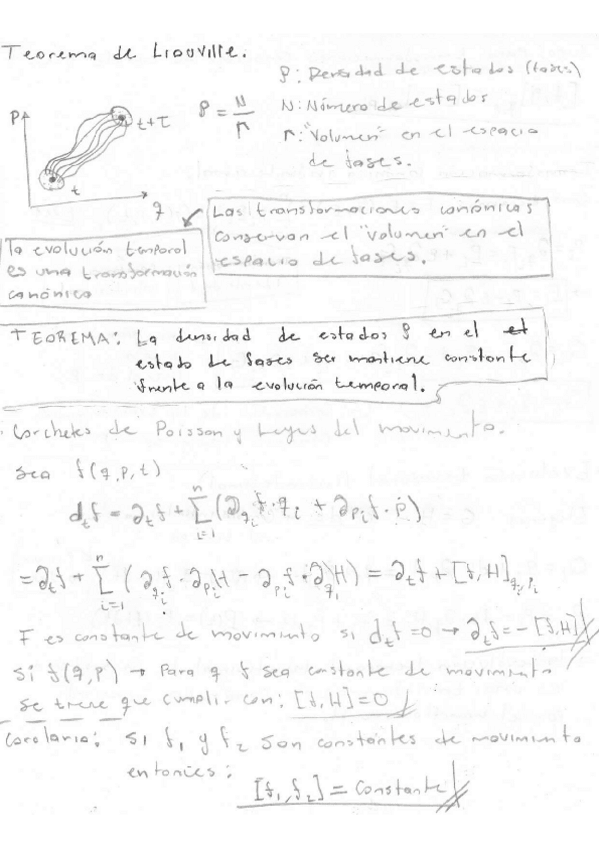 Teorema de Liouville.
ρ: Densidad de estados (fases)
P
t+τ
ρ = N/Γ
N: Número de estados
Γ: "Volumen" en el espacio
de fases.
t
q
Las transformaciones canónicas
conservan el "volumen" en el
espacio de fases.
la evolución temporal
es una transformación
canónica
TEOREMA: La densidad de estados ρ en el
estado de fases ser mantiene constante
frente a la evolución temporal.
Corchetes de Poisson y Leyes del movimiento.
Sea f(q,p,t)
dₜf = ∂ₜf + Σᵢ₌₁ⁿ (∂qᵢf · q̇ᵢ + ∂pᵢf · ṗ)
= ∂ₜf + Σᵢ₌₁ⁿ (∂qᵢf · ∂pᵢH - ∂pᵢf · ∂qᵢH) = ∂ₜf + [f,H]qᵢ,pᵢ
F es constante de movimiento si dₜf = 0 → ∂ₜf = -[f,H]
Si f(q,p) → Para q f sea constante de movimiento
se tiene que cumplir con: [f,H] = 0
Corolario: Si f₁ y f₂ son constantes de movimiento
entonces:
[f₁,f₂] = constante